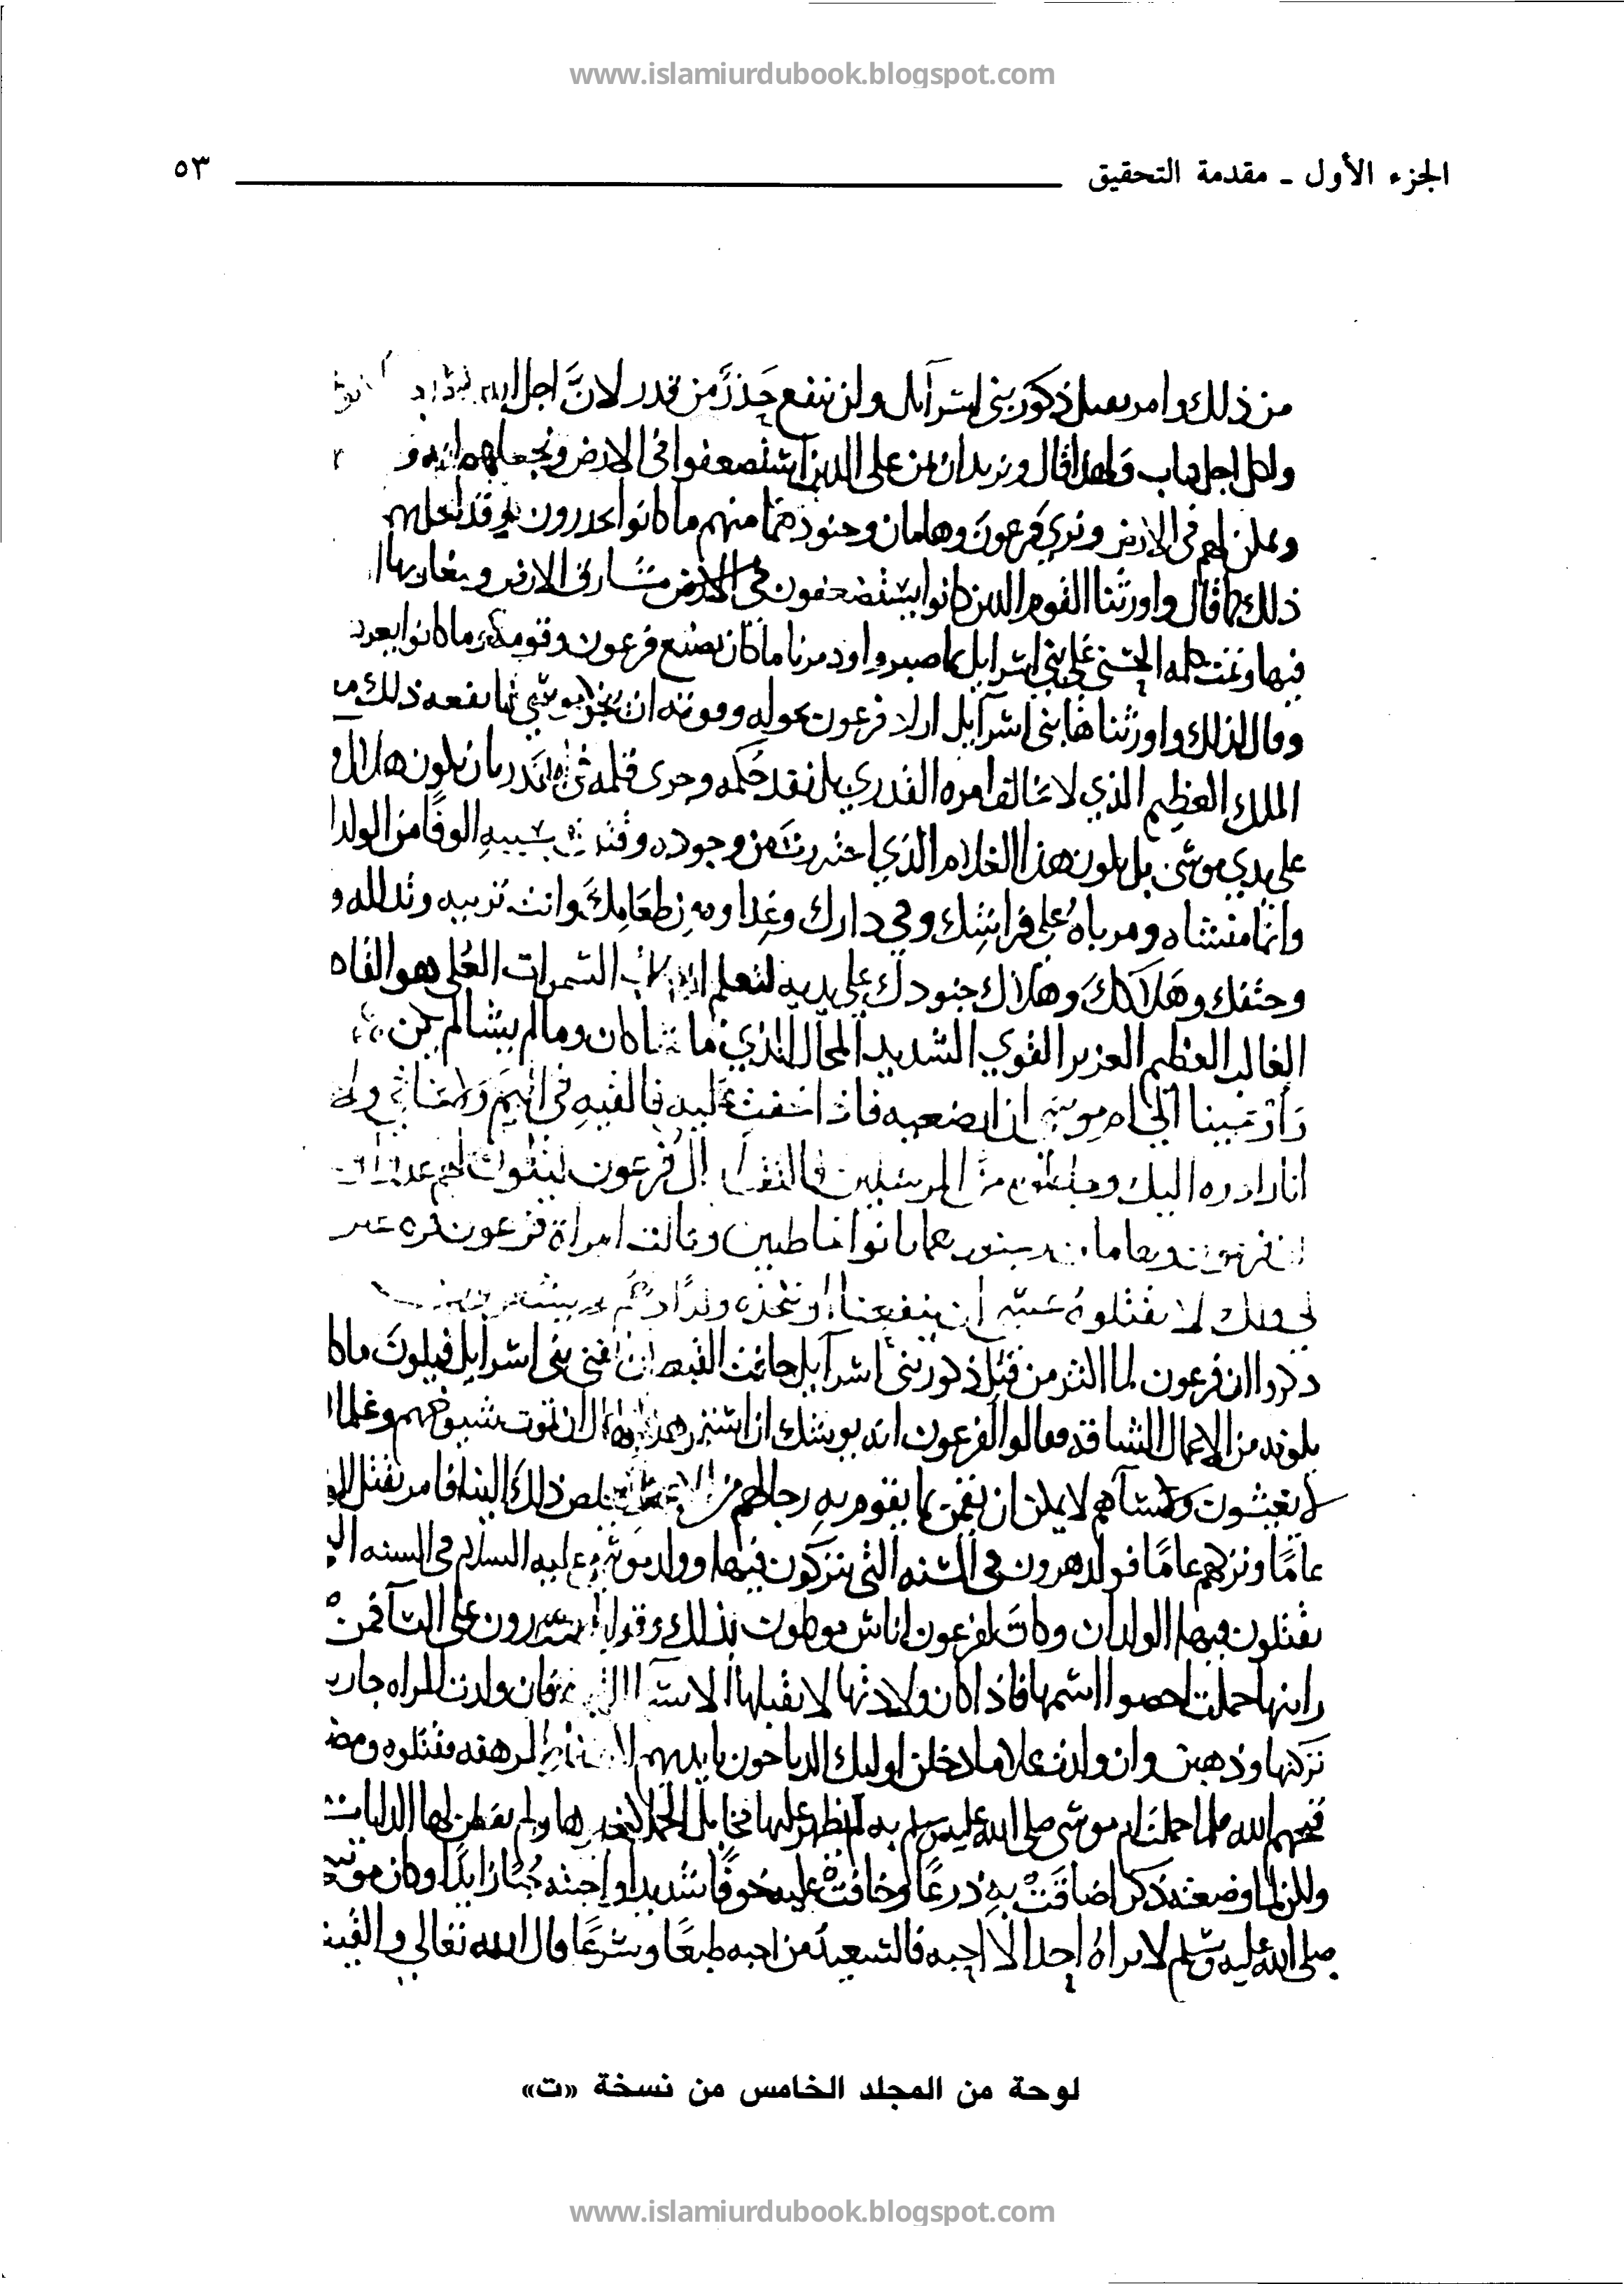 www.islamiurdubook.blogspot.com
الجزء الأول - مقدمة التحقيق ٥٣
من ذلك وامر بقتل ذكور بني اسرآيل ولن ينفع حَذَرٌ من قدر لانَّ اجل الله
ولكل اجل كتاب ولهذا قال ونريد ان نمن على الذين استضعفوا في الارض ونجعلهم ايمه و
ونمكن لهم في الارض ونري فرعون وهامان وجنودهما منهم ما كانوا يحدرون وقد فعل بهم
ذلك كما قال واورثنا القوم الذين كانوا يستضعفون مشارق الارض ومغاربها ا
فيها وتمت كلمه الحسنى على بني اسرايل بما صبروا ودمرنا ما كان يصنع فرعون وقومه وما كانوا يعرد
وقال كذلك واورثناها بني اسرآيل اراد فرعون بحوله وقوته ان ينجو من موسى فما نفعه ذلك م
الملك العظيم الذي لا يخالف امره القدري بل نفد حكمه وجرى قلمه في القدم بان يكون هلاك
على يدي موسى بل يكون هذا الغلام الذي احترزت من وجوده وقتلت بسببه الوفًا من الولدا
وانما منشاه ومرباهُ على فراشِك وفي دارك وغداوه من طعَامِكَ وانت تربيه وتدلله و
وحتفك وهَلاككَ وهلاك جنودك على يديه لتعلم ان رب السموات العُلى هو القاه
الغالب العظيم العزيز القوي الشديد المحال الذي ما شا كان وما لم يشا لم يكن
واوحينا الى ام موسى ان ارضعيه فاذا خفت عليه فالقيهِ في اليَم ولا تخافي ولا
انا رادوه اليك وجاعلوه من المرسلين فالتقطه ال فرعون ليكون لهم عدوا
ان فرعون وهامان وجنودهما كانوا خاطيين وقالت امراة فرعون قره عين
لي ولك لا تقتلوهُ عسى ان ينفعنا او نتخذه ولدًا وهُم لا يشعرون
ذكروا ان فرعون لما اكثر من قتل ذكور بني اسرآيل خافت القبط ان يفني بني اسرايل فيلونَ ما كا
يلونه من الاعمال الشاقه فقالوا لفرعون انه يوشك ان استمر هذا الحال ان تموت شيوخهم وغلما
لا يعيشون ونساهم لا يمكن ان يقمن بما يقوم به رجالهم من الاعمال فيخلص ذلك الينا فامر بقتل الو
عامًا وتركهم عامًا فولد هرون في السنه التي يتركون فيها وولد موسى عليه السلام في السنه ال
يقتلون فيها الولدان وكان لفرعون اناس موكلون بذلك وقوابل يدورون على النسآ فمن
راينها حملت احصوا اسمها فاذا كان ولادتها لا يقبلها الا نسآ القبط فان ولدت المراه جاري
تركنها وذهبن وان ولدت غلاما دخلن اوليك الدباحون بايديهم الشفار المرهفه فقتلوه ومض
قبحهم الله فلما حملت ام موسى صلى الله عليه وسلم به لم يظهر عليها مخايل الحمل كغيرها ولم يفطن لها الدايات
ولكن لما وضعته ذكرًا ضاقَت به ذرعًا وخافت عليه خوفًا شديدا واحبته حبًا زايدًا وكان موسى
صلى الله عليه وسلم لا يراهُ احد الا احبه فالسعيد من احبه طبعًا وشرعًا قال الله تعالى والقيت
لوحة من المجلد الخامس من نسخة «ت»
www.islamiurdubook.blogspot.com